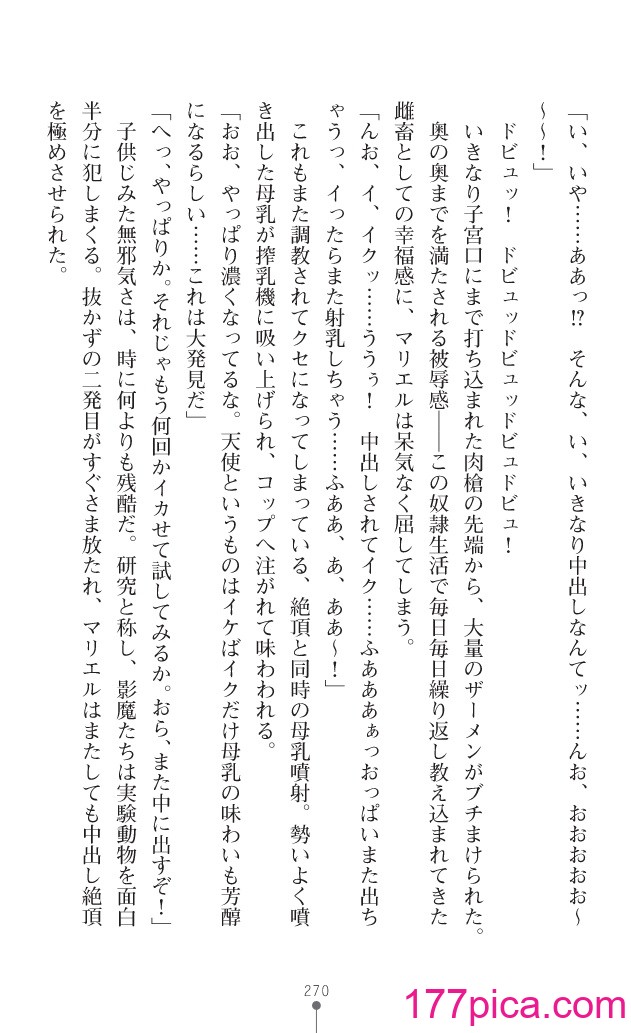 「い、いや……ああっ!?　そんな、い、いきなり中出しなんてッ……んお、おおおおお～
～～！」
ドビュッ！　ドビュッドビュッドビュドビュ！
いきなり子宮口にまで打ち込まれた肉槍の先端から、大量のザーメンがブチまけられた。
奥の奥までを満たされる被辱感――この奴隷生活で毎日毎日繰り返し教え込まれてきた
雌畜としての幸福感に、マリエルは呆気なく屈してしまう。
「んお、イ、イクッ……ううぅ！　中出しされてイク……ふあああぁっおっぱいまた出ち
ゃうっ、イったらまた射乳しちゃう……ふああ、あ、ああ～！」
これもまた調教されてクセになってしまっている、絶頂と同時の母乳噴射。勢いよく噴
き出した母乳が搾乳機に吸い上げられ、コップへ注がれて味わわれる。
「おお、やっぱり濃くなってるな。天使というものはイケばイクだけ母乳の味わいも芳醇
になるらしい……これは大発見だ」
「へっ、やっぱりか。それじゃもう何回かイカせて試してみるか。おら、また中に出すぞ！」
子供じみた無邪気さは、時に何よりも残酷だ。研究と称し、影魔たちは実験動物を面白
半分に犯しまくる。抜かずの二発目がすぐさま放たれ、マリエルはまたしても中出し絶頂
を極めさせられた。
270
177pica.com